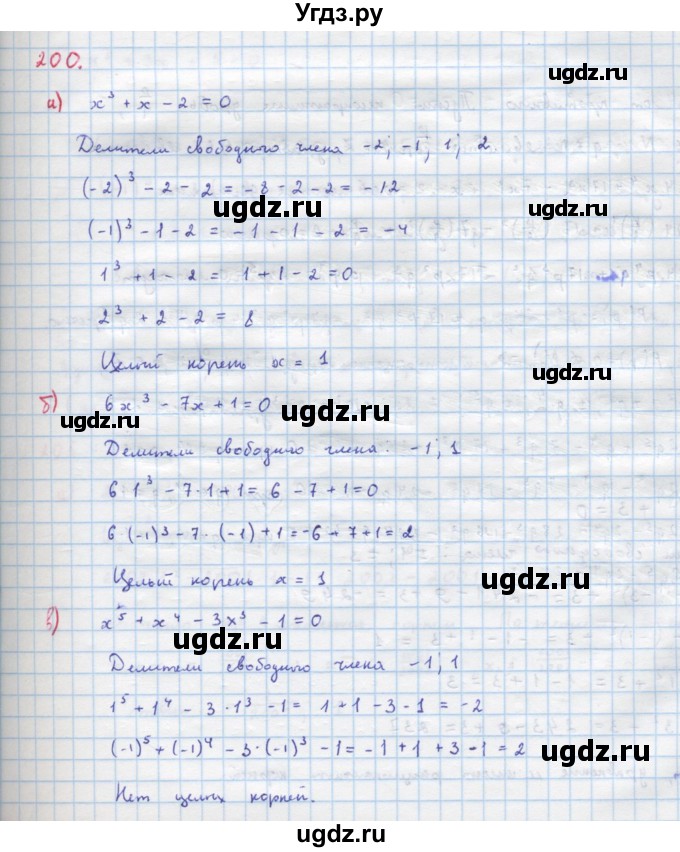 Угдз.ру
200.
а) x³ + x - 2 = 0
Делители свободного члена -2; -1; 1; 2
(-2)³ - 2 - 2 = -8 - 2 - 2 = -12
(-1)³ - 1 - 2 = -1 - 1 - 2 = -4
1³ + 1 - 2 = 1 + 1 - 2 = 0
2³ + 2 - 2 = 8
Целый корень x = 1
б) 6x³ - 7x + 1 = 0
Делители свободного члена. -1; 1
6·1³ - 7·1 + 1 = 6 - 7 + 1 = 0
6·(-1)³ - 7·(-1) + 1 = -6 + 7 + 1 = 2
Целый корень x = 1
в) x⁵ + x⁴ - 3x³ - 1 = 0
Делители свободного члена -1; 1
1⁵ + 1⁴ - 3·1³ - 1 = 1 + 1 - 3 - 1 = -2
(-1)⁵ + (-1)⁴ - 3·(-1)³ - 1 = -1 + 1 + 3 - 1 = 2
Нет целых корней.
ugdz.ru
ugdz.ru
ugdz.ru
ugdz.ru
ugdz.ru
ugdz.ru
ugdz.ru
ugdz.ru
ugdz.ru
ugdz.ru
ugdz.ru